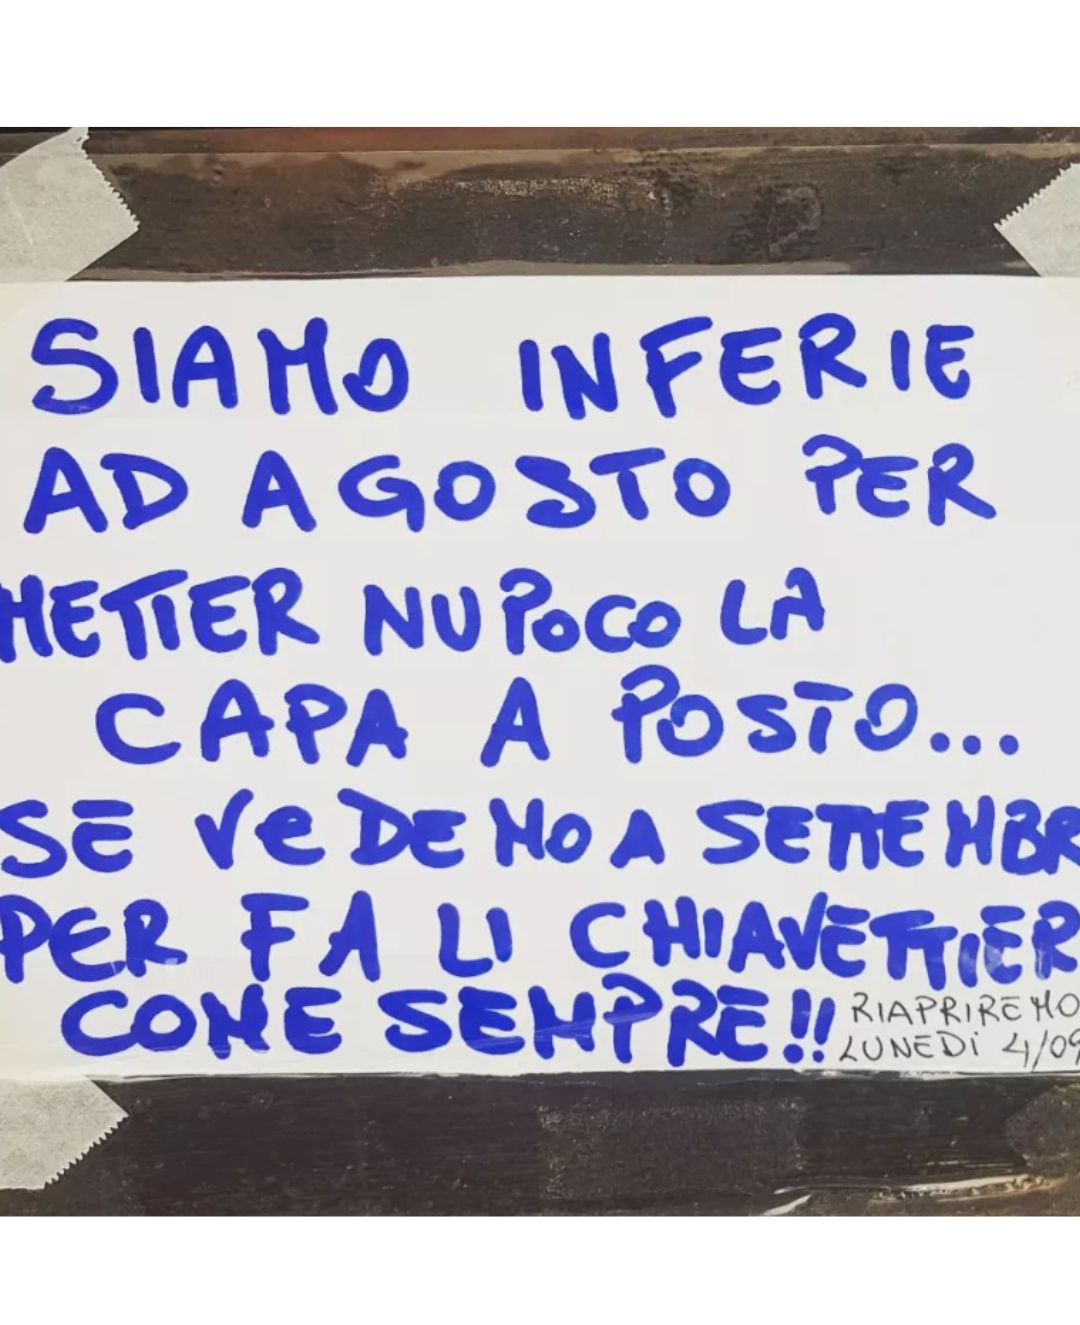 SIAMO INFERIE
AD AGOSTO PER
METTER NU POCO LA
CAPA A POSTO...
SE VEDEMO A SETTEMBR
PER FA LI CHIAVETTIER
COME SEMPRE!!
RIAPRIREMO
LUNEDì 4/09